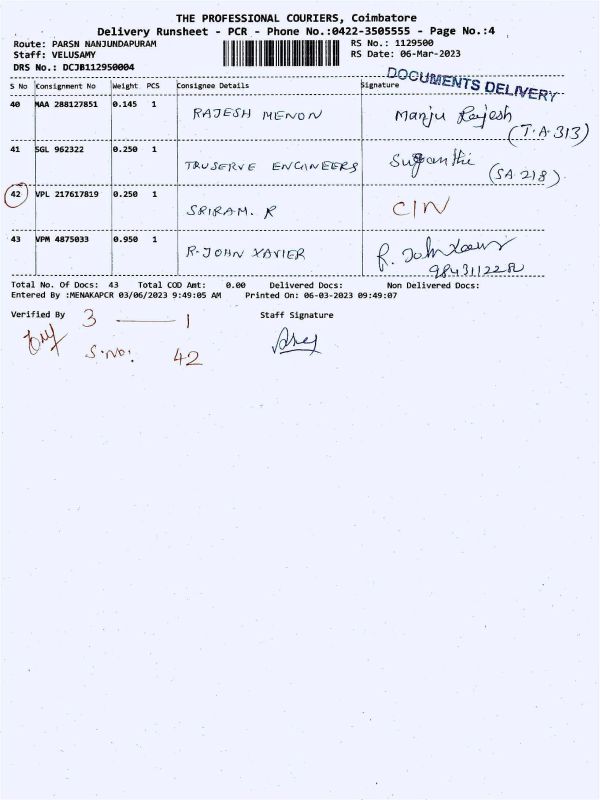 THE PROFESSIONAL COURIERS, Coimbatore
Delivery Runsheet - PCR - Phone No.:0422-3505555 - Page No.:4
Route: PARSN NANJUNDAPURAM RS No.: 1129500
Staff: VELUSAMY RS Date: 06-Mar-2023
DRS No.: DCJB112950004
DOCUMENTS DELIVERY
S No Consignment No Weight PCS Consignee Details Signature
40 MAA 288127851 0.145 1 RAJESH MENON Manju Rajesh
(T.A-313)
41 SGL 962322 0.250 1 TRUSERVE ENGINEERS Suganthi
(SA 218)
42 VPL 217617819 0.250 1 SRIRAM. R CIN
43 VPM 4875033 0.950 1 R-JOHN XAVIER R. John Xavier
Total No. Of Docs: 43 Total COD Amt: 0.00 Delivered Docs: Non Delivered Docs:
Entered By :MENAKAPCR 03/06/2023 9:49:05 AM Printed On: 06-03-2023 09:49:07
Verified By 3 — 1 Staff Signature
S.No: 42